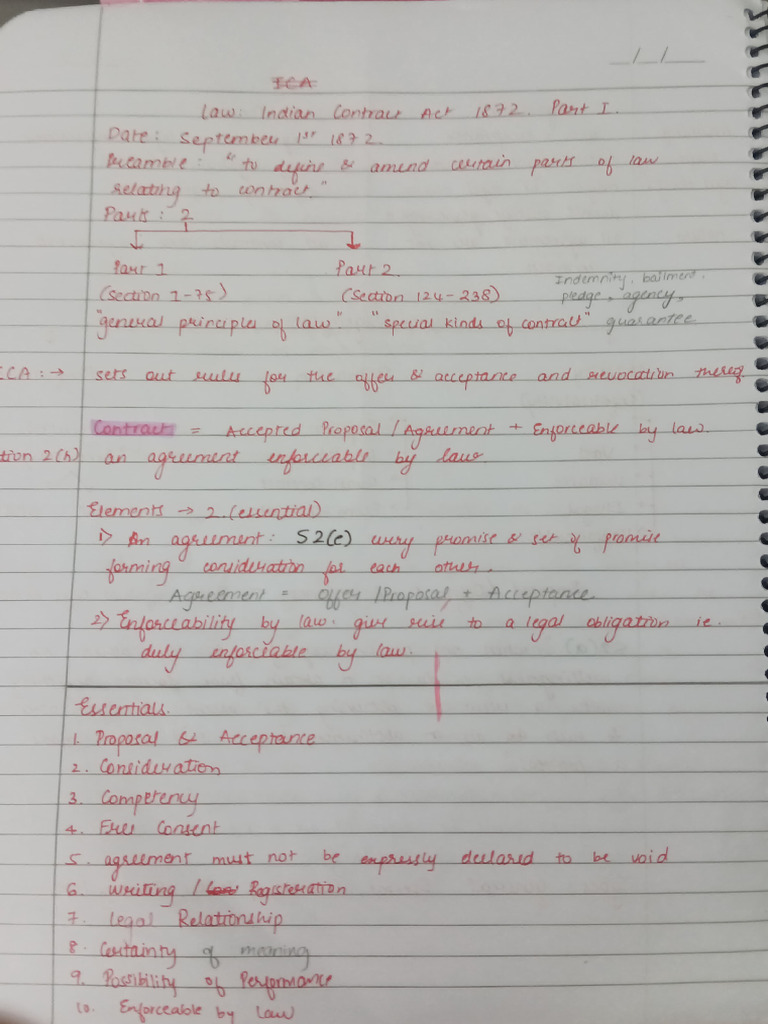 ICA
Law: Indian Contract Act 1872. Part I.
Date: September 1st 1872.
Preamble: "to define & amend certain parts of law
relating to contract."
Parts: 2
Part 1 Part 2
(Section 1-75) (Section 124-238) Indemnity, bailment,
pledge, agency,
"general principles of law" "special kinds of contract" guarantee
ICA :→ sets out rules for the offer & acceptance and revocation thereof
Contract = Accepted Proposal / Agreement + Enforceable by law.
tion 2(h) an agreement enforceable by law
Elements → 2. (essential)
1) An agreement: S2(e) every promise & set of promise
forming consideration for each other.
Agreement = offer / Proposal + Acceptance
2) Enforceability by law. give rise to a legal obligation ie.
duly enforciable by law.
Essentials.
1. Proposal & Acceptance
2. Consideration
3. Competency
4. Free Consent
5. agreement must not be expressly declared to be void
6. Writing / Registeration
7. Legal Relationship
8. Certainty of meaning
9. Possibility of Performance
10. Enforceable by law